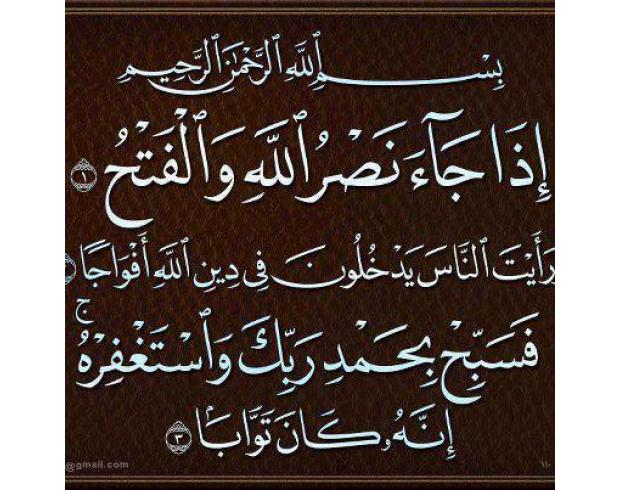 بِسْمِ ٱللَّهِ ٱلرَّحْمَٰنِ ٱلرَّحِيمِ
إِذَا جَآءَ نَصْرُ ٱللَّهِ وَٱلْفَتْحُ ١
رَأَيْتَ ٱلنَّاسَ يَدْخُلُونَ فِى دِينِ ٱللَّهِ أَفْوَاجًا
فَسَبِّحْ بِحَمْدِ رَبِّكَ وَٱسْتَغْفِرْهُ ۚ
إِنَّهُۥ كَانَ تَوَّابًۢا ٣
@gmail.com ١١٠